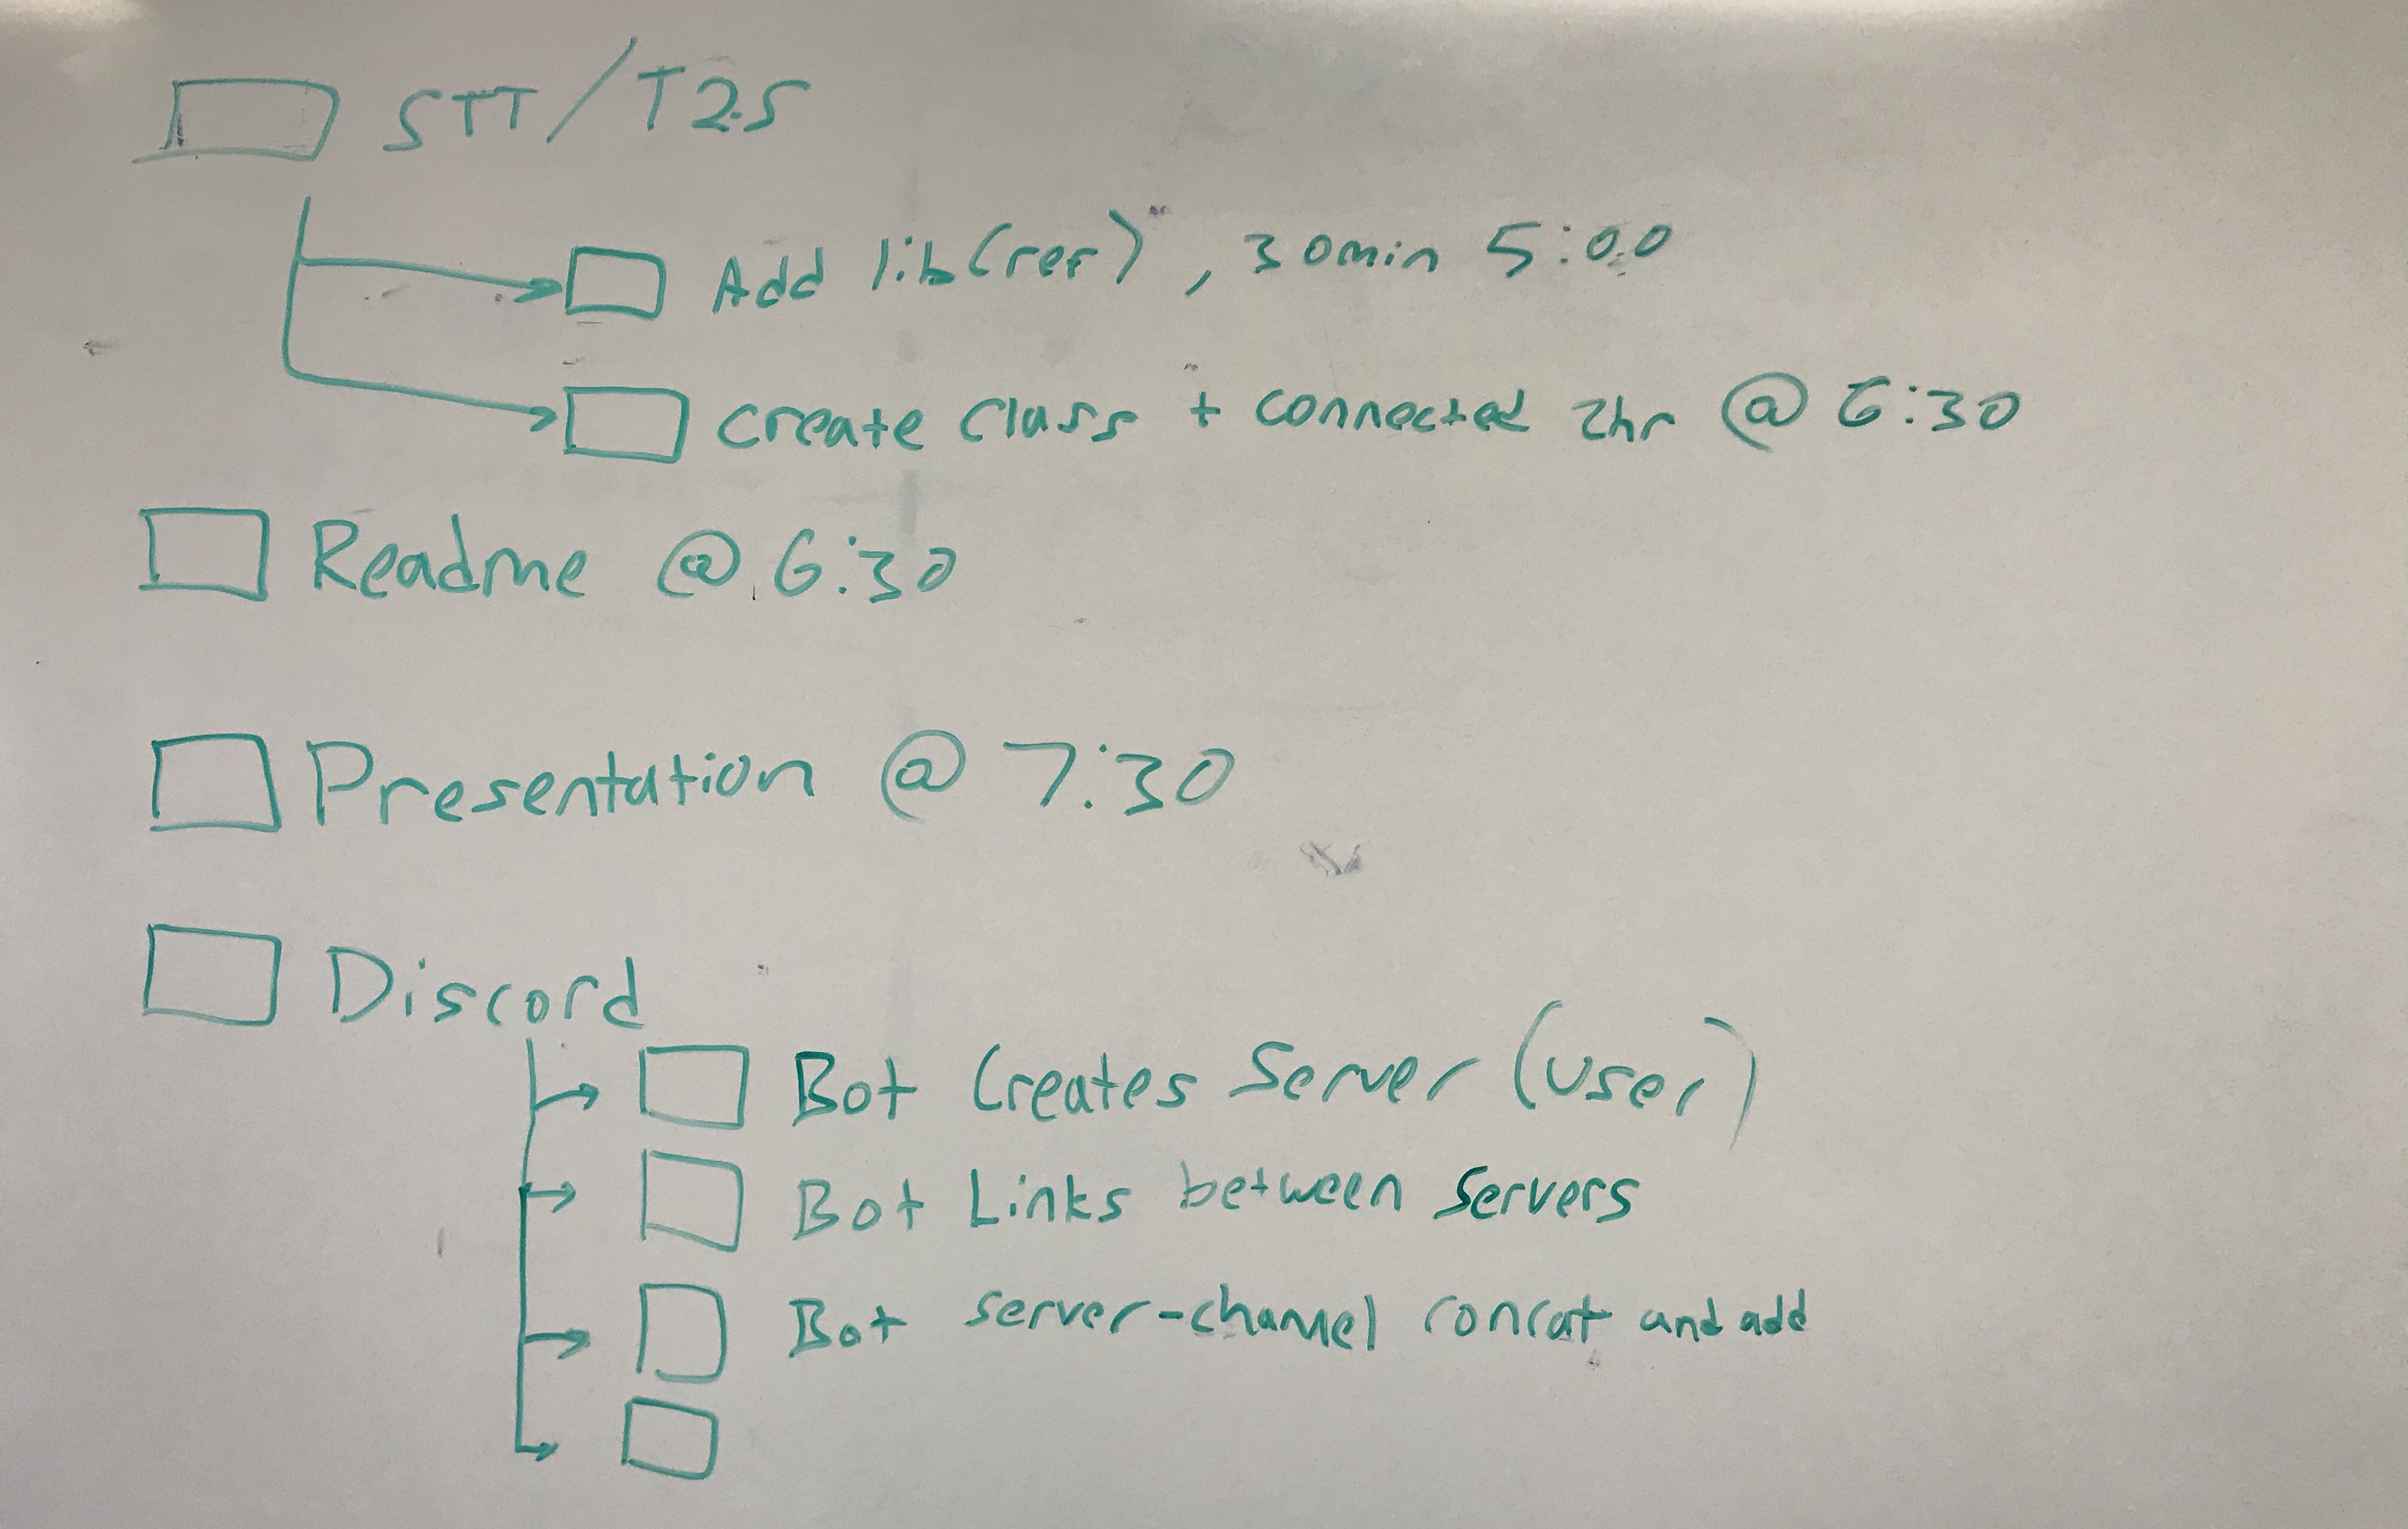 STT/T2S
Add lib(ref), 30min 5:00
create class + connected 2hr @ 6:30
Readme @ 6:30
Presentation @ 7:30
Discord
Bot Creates Server (user)
Bot Links between Servers
Bot server-channel concat and add